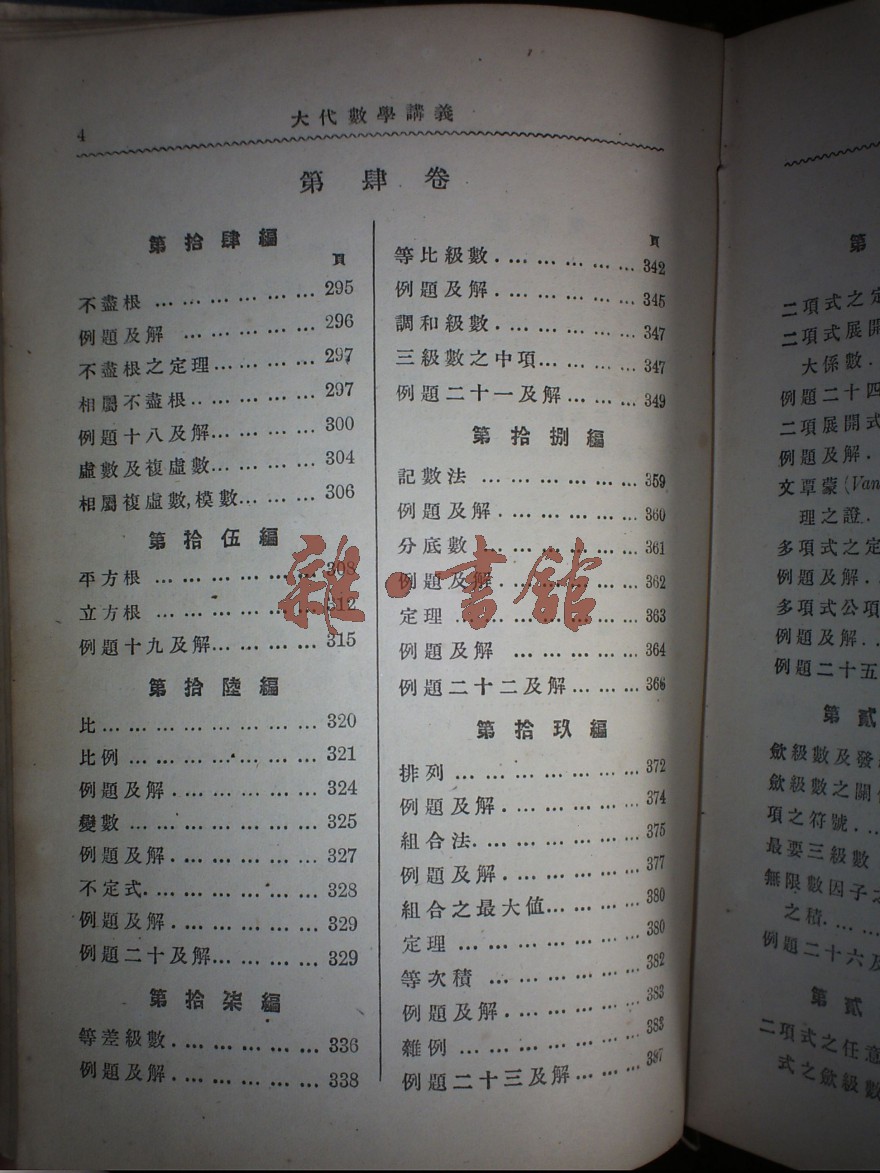 4
大代數學講義
第肆卷
第拾肆編
頁
不盡根 … … … … … … 295
例題及解 … … … … … 296
不盡根之定理… … … … 297
相屬不盡根… … … … … 297
例題十八及解… … … … 300
虛數及複虛數… … … … 304
相屬複虛數,模數… … … 306
第拾伍編
平方根 … … … … … … 308
立方根 … … … … … … 312
例題十九及解… … … … 315
第拾陸編
比… … … … … … … … 320
比例 … … … … … … … 321
例題及解… … … … … … 324
變數 … … … … … … … 325
例題及解… … … … … … 327
不定式… … … … … … … 328
例題及解… … … … … … 329
例題二十及解… … … … 329
第拾柒編
等差級數… … … … … … 336
例題及解… … … … … … 338
頁
等比級數… … … … … … 342
例題及解… … … … … … 345
調和級數… … … … … … 347
三級數之中項… … … … 347
例題二十一及解… … … 349
第拾捌編
記數法 … … … … … … 359
例題及解… … … … … … 360
分底數 … … … … … … 361
例題及解… … … … … … 362
定理 … … … … … … … 363
例題及解 … … … … … 364
例題二十二及解… … … 366
第拾玖編
排列 … … … … … … … 372
例題及解… … … … … … 374
組合法… … … … … … … 375
例題及解… … … … … … 377
組合之最大值… … … … 380
定理 … … … … … … … 380
等次積 … … … … … … 382
例題及解… … … … … … 383
雜例 … … … … … … … 383
例題二十三及解… … … 387
第
二項式之定
二項式展開
大係數.
例題二十四
二項展開式
例題及解.
文覃蒙(Van
理之證.
多項式之定
例題及解.
多項式公項
例題及解…
例題二十五
第貳
斂級數及發
斂級數之關
項之符號…
最要三級數
無限數因子之
之積… …
例題二十六及
第貳
二項式之任意
式之斂級數
雜·書館